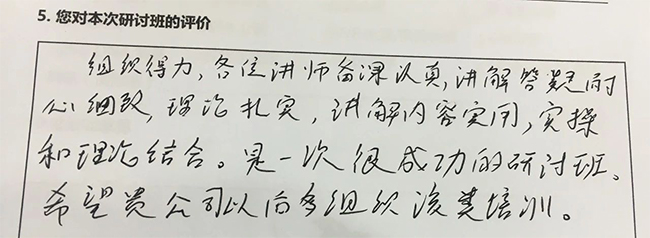 5. 您对本次研讨班的评价
组织得力，各位讲师备课认真，讲解答疑耐
心细致，理论扎实，讲解内容实用，实操
和理论结合。是一次很成功的研讨班。
希望贵公司以后多组织该类培训。